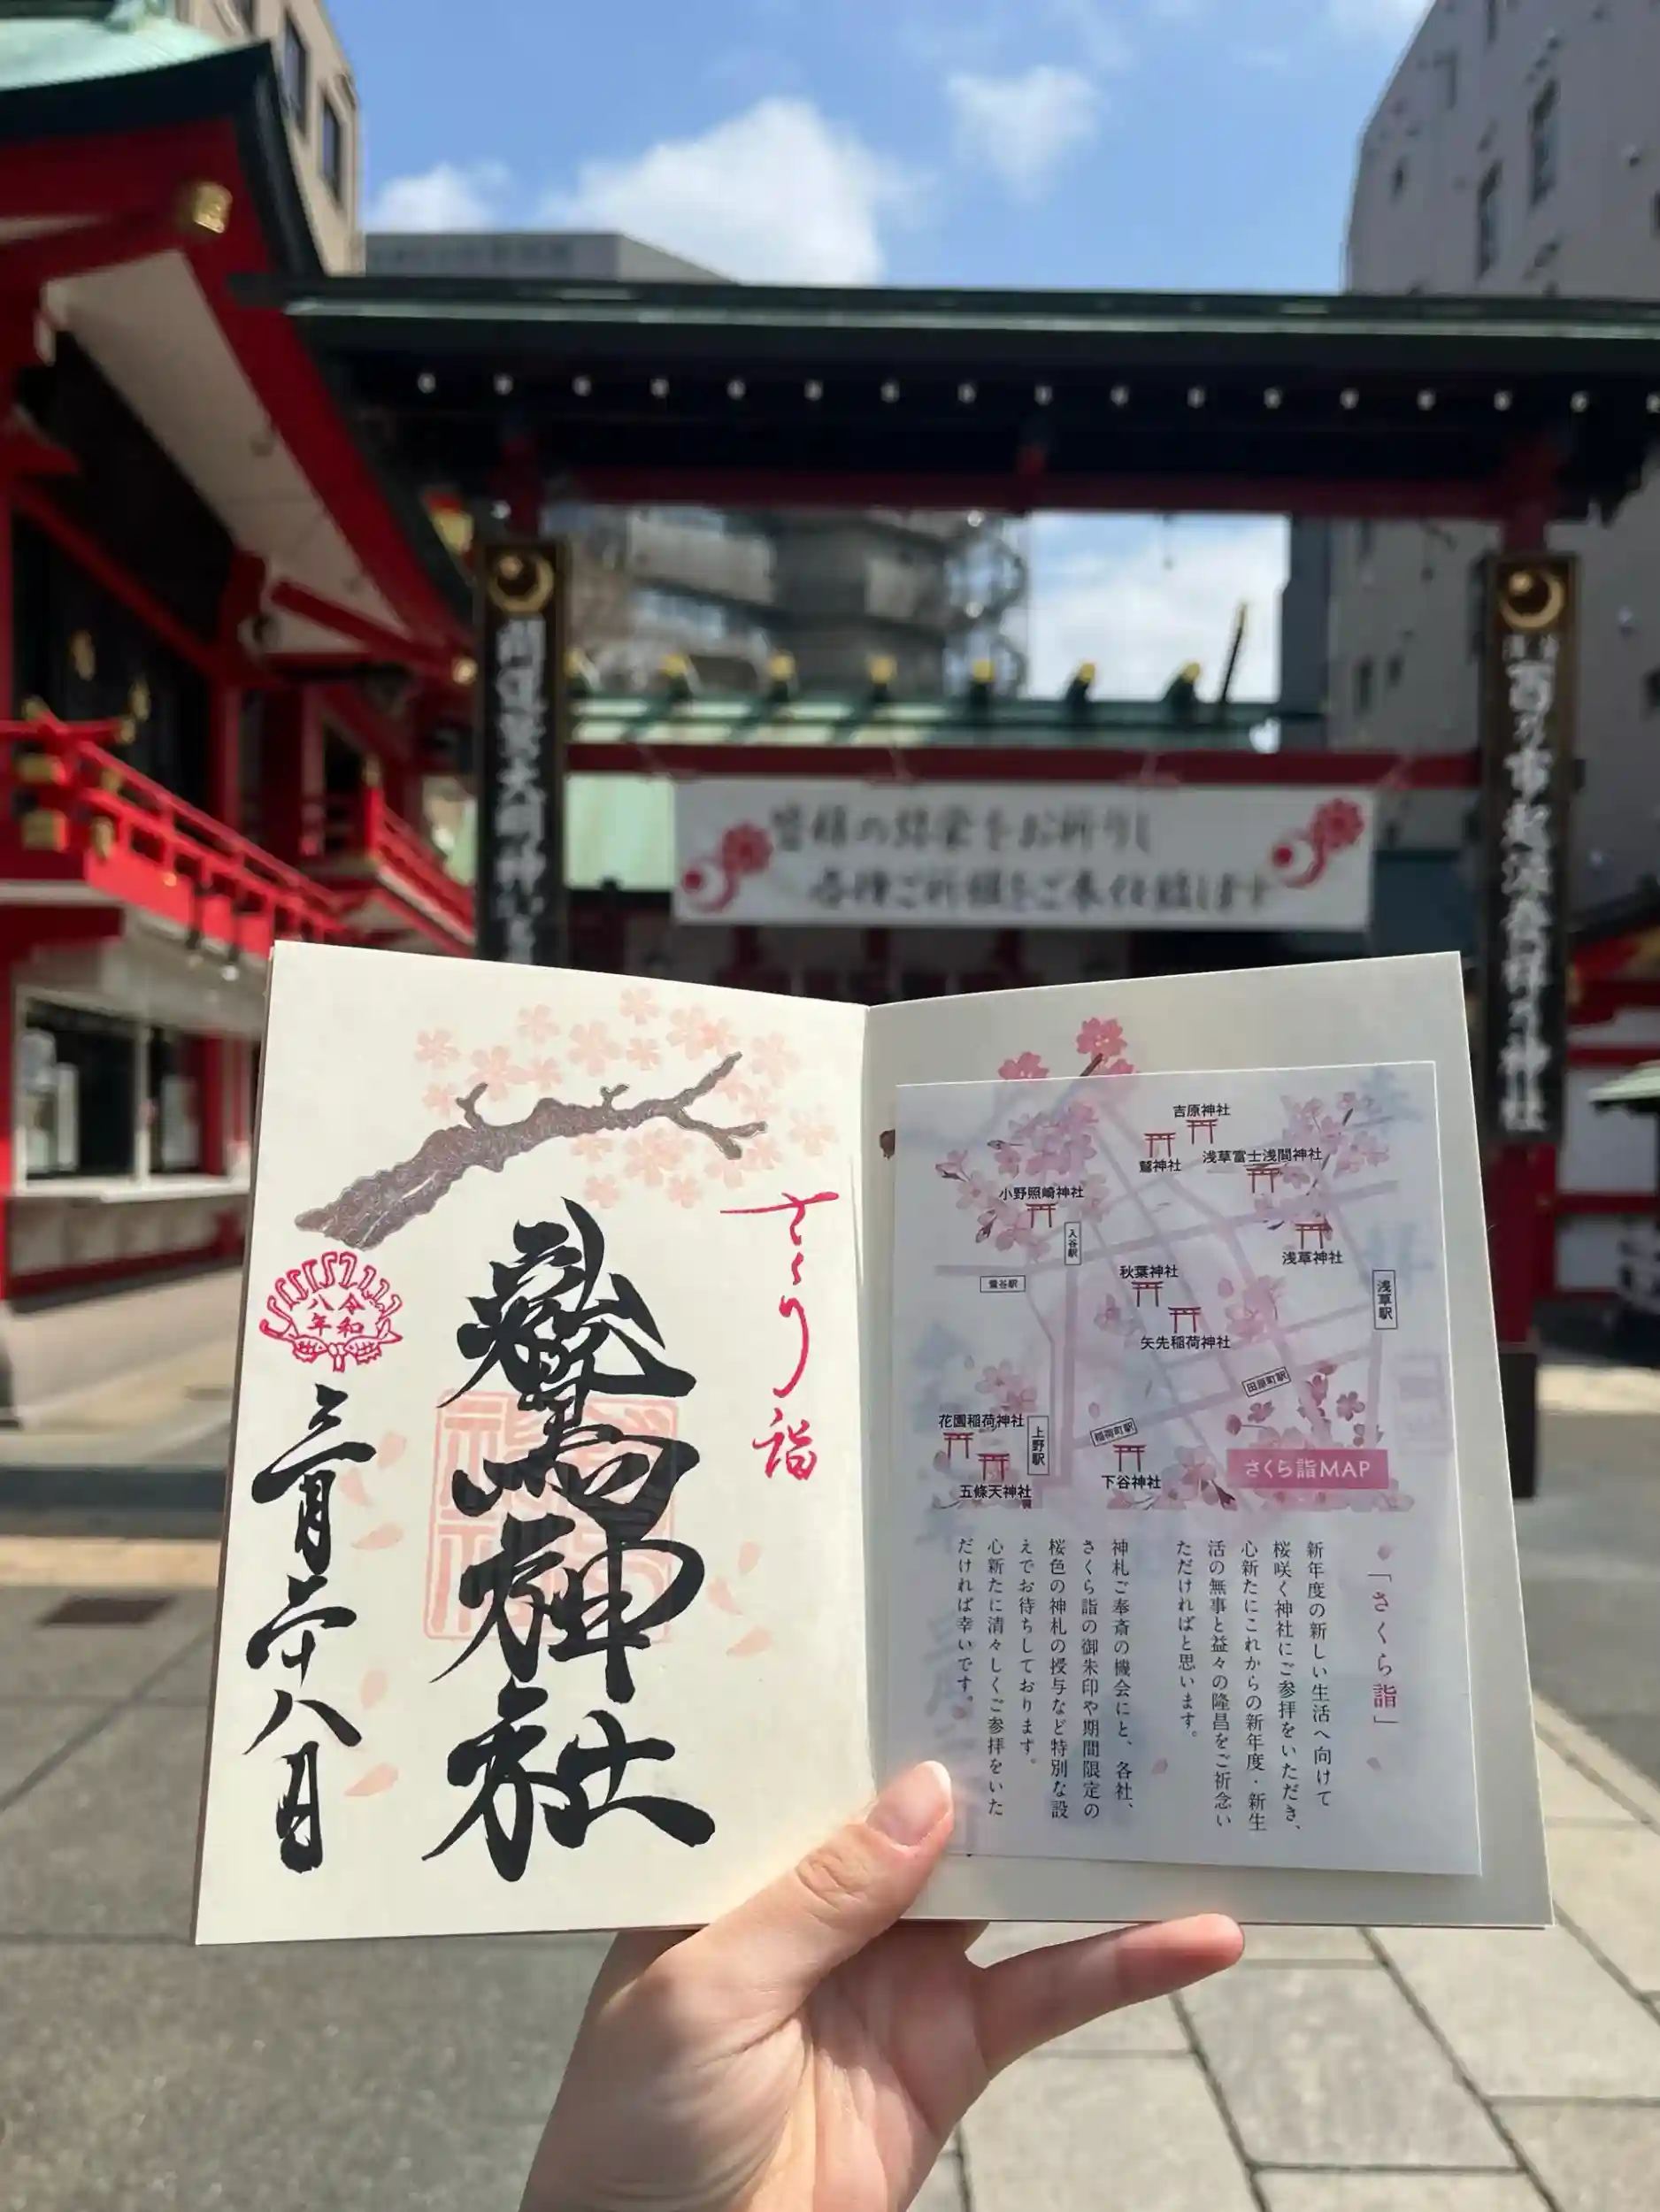 皆様の繁栄をお祈りし
各種ご祈祷をご奉仕致します
酉の市起源發祥の神社
さくら詣
鷲神社
令和
八年
三月二十八日
吉原神社
鷲神社
浅草富士浅間神社
小野照崎神社
入谷駅
浅草神社
鶯谷駅
秋葉神社
浅草駅
矢先稲荷神社
田原町駅
花園稲荷神社
上野駅
稲荷町駅
五條天神社
下谷神社
さくら詣MAP
「さくら詣」
新年度の新しい生活へ向けて
桜咲く神社にご参拝をいただき、
心新たにこれからの新年度・新生
活の無事と益々の隆昌をご祈念い
ただければと思います。
神札ご奉斎の機会にと、各社、
さくら詣の御朱印や期間限定の
桜色の神札の授与など特別な設
えでお待ちしております。
心新たに清々しくご参拝をいた
だければ幸いです。